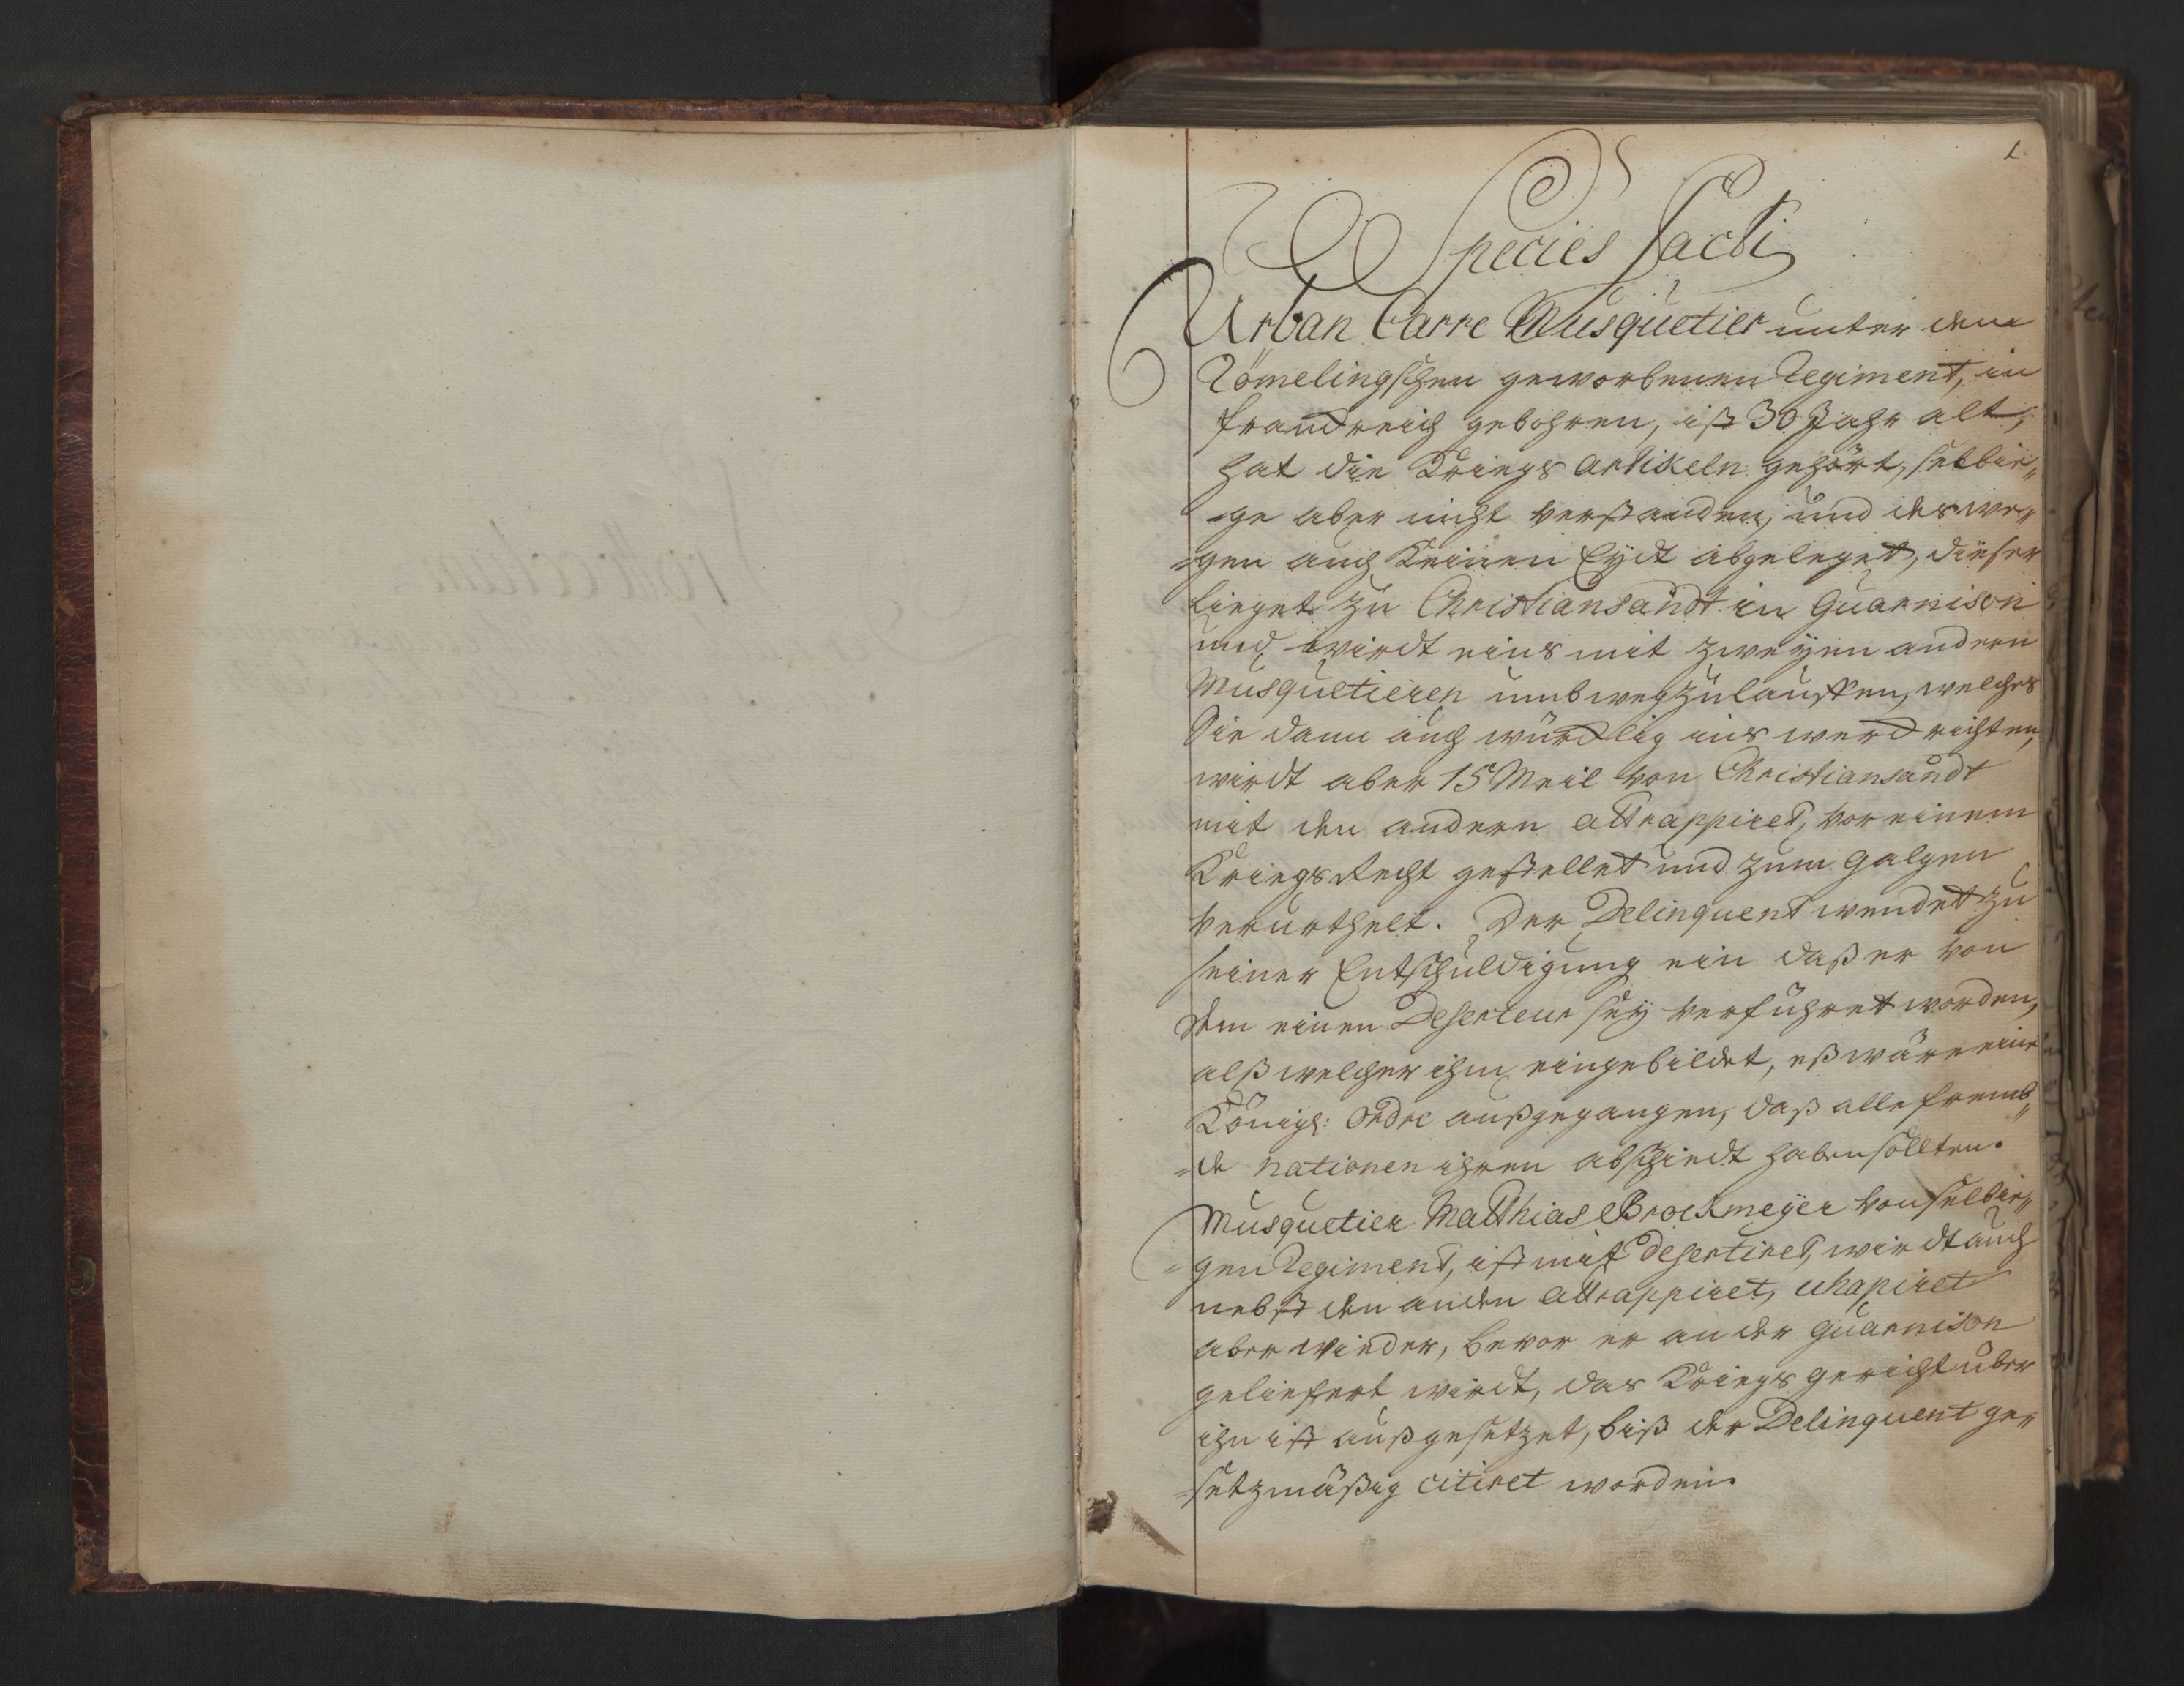 1
Species facti
Urban Carre Musquetier unter dem
Römelingschen geworbenen Regiment, in
franckreich gebohren, ist 30 Jahr alt,
hat die Kriegs Artikeln gehört, selbie„
-ge aber nicht verstanden, und deswe„
=gen auch keinen Eydt abgeleget, dieser
lieget zu Christiansandt in Guarnison
und wirdt eins mit zweyen andern
Musquetieren umb wegzulauffen, welches
Sie dann auch würcklig ins werck richten,
wirdt aber 15 Meil von Christiansandt
mit den andern attrappiret, vor einem
Kriegs Recht gestellet und zum Galgen
verurthelt. Der Delinquent wendet zu
seiner Entschuldigung ein daß er von
dem einen Deserteur sey verführet worden,
alß welcher ihm eingebildet, eß wäre eine
Königl: Ordre außgegangen, daß alle fremb„
=de nationen ihren abschiedt haben sollten.
Musquetier Matthias Brockmeyer von selbie„
=gen Regiment, ist mit desertiret, wirdt auch
nebst den anden attrappiret, echapiret
aber wieder, bevor er an der Guarnison
geliefert wirdt, das Kriegs gericht über
ihn ist außgesetzet, biß der Delinquent ge„
=setzmäßig citiret worden.